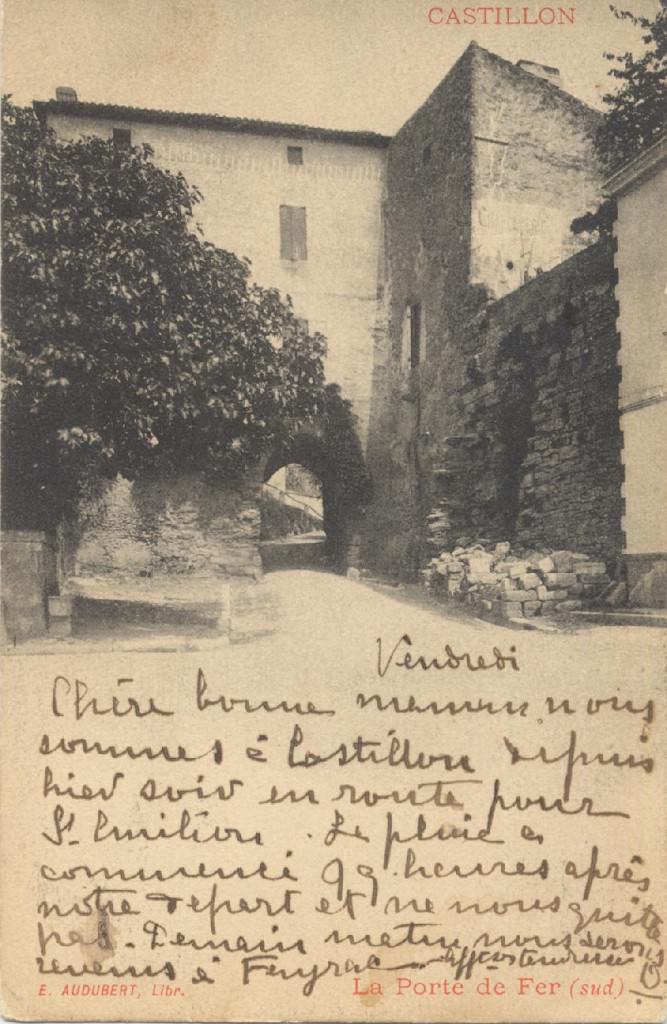 CASTILLON
Vendredi
Chère bonne maman nous
sommes à Castillon depuis
hier soir en route pour
St Emilion. La pluie a
commencé qq. heures après
notre départ et ne nous quitte
pas. Demain matin nous serons
revenus à
E. AUDUBERT, Libr.
La Porte de Fer (sud)